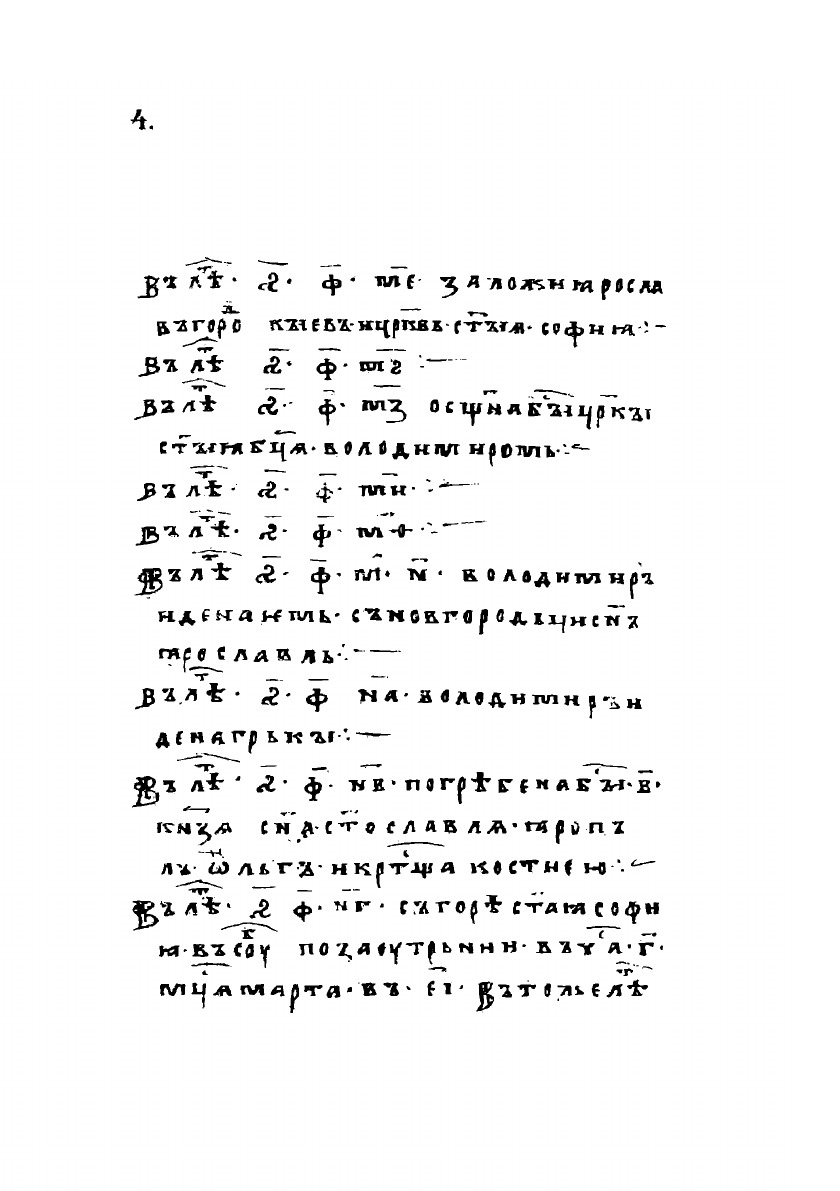 4.
Въ лѣт҃ · ѕ҃ · ф҃ · м҃е · заложи ꙗросла
въ горо̑д кыевъ · и цр҃квь · ст҃ыꙗ · софиꙗ ⁘ –
Въ лѣт҃ ѕ҃ · ф҃ · м҃ѕ ⁘ —
Въ лѣт҃ ѕ҃ · ф҃ · м҃з ос҃щна бы҃ цр҃кы
ст҃ыꙗ бц҃ѧ · володимиромь ⁘ –
Въ лѣт҃ · ѕ҃ · ф҃ · м҃и · ⁘ —
Въ лѣт҃ · ѕ҃ · ф҃ · м҃ѳ · ⁘ —
Въ лѣт҃ ѕ҃ · ф҃ · м҃ · н҃ · володимиръ
иде на ѥмь · съ новгородьци сн҃ъ
ꙗрославль ⁘ —
Въ лѣт҃ · ѕ҃ · ф҃ н҃а · володимиръ и
де на грькы ⁘ —
Въ лѣт҃ · ѕ҃ · ф҃ · н҃в · погрѣбена бы҃ · в҃ ·
кн҃зѧ сн҃а · ст҃ославлѧ · ꙗропъ
лъ · ѡльгъ · и кр҃тша кости ею ⁘ –
Въ лѣт҃ · ѕ҃ ф҃ · н҃г · съгорѣ ст҃аꙗ софи
ꙗ · въ соу҃б по заоутрьнии · въ ч҃а · г҃ ·
мц҃ѧ марта · въ · е҃і · Въ то лье лѣт҃